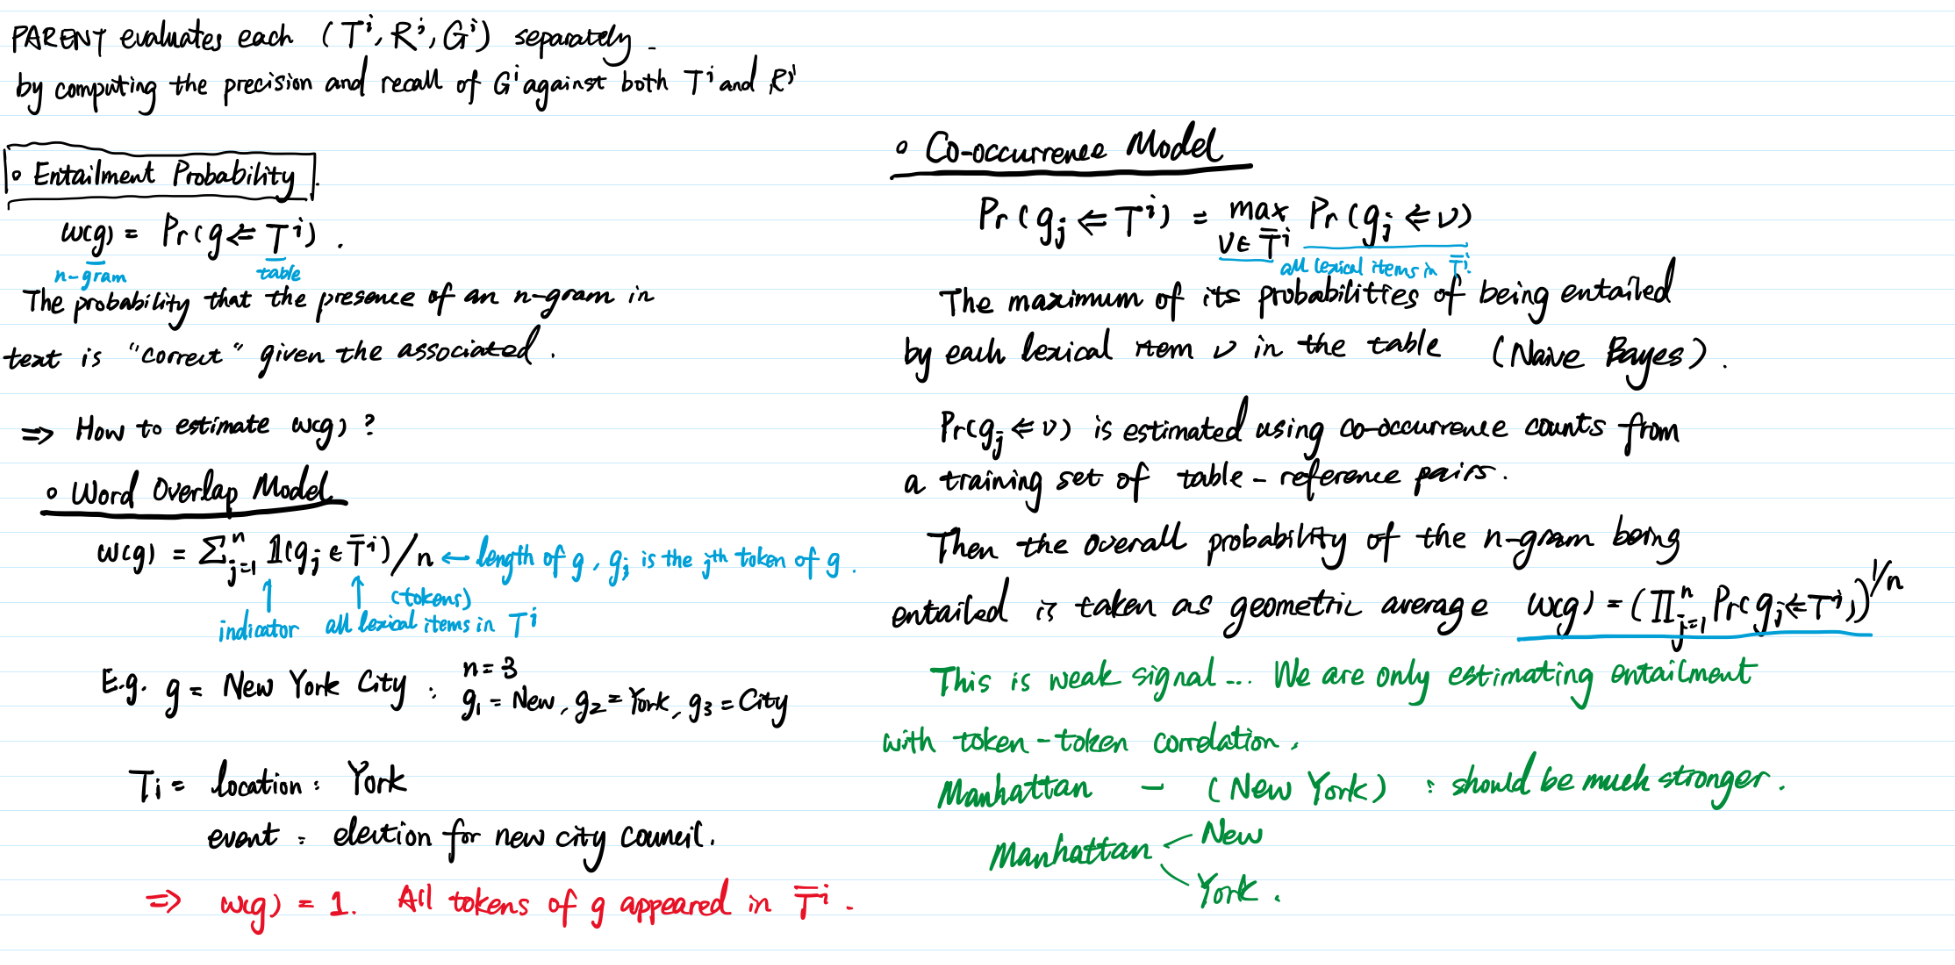 PARENT evaluates each (Tⁱ, Rⁱ, Gⁱ) separately.
by computing the precision and recall of Gⁱ against both Tⁱ and Rⁱ
∘ Entailment Probability
w(g) = Pr(g ⇐ Tⁱ).
n-gram table
The probability that the presence of an n-gram in
text is "correct" given the associated.
⇒ How to estimate w(g)?
∘ Word Overlap Model
w(g) = Σⁿⱼ₌₁ 𝟙(gⱼ ∈ T̄ⁱ)/n ← length of g, gⱼ is the jᵗʰ token of g.
↑ ↑ (tokens)
indicator all lexical items in Tⁱ
E.g. g = New York City : n=3
g₁ = New, g₂ = York, g₃ = City
Tᵢ = location : York
event : election for new city council.
⇒ w(g) = 1. All tokens of g appeared in T̄ⁱ.
∘ Co-occurrence Model
Pr(gⱼ ⇐ Tⁱ) = max Pr(gⱼ ⇐ ν)
V ∈ T̄ⁱ all lexical items in T̄ⁱ
The maximum of its probabilities of being entailed
by each lexical item ν in the table (Naive Bayes).
Pr(gⱼ ⇐ ν) is estimated using co-occurrence counts from
a training set of table - reference pairs.
Then the overall probability of the n-gram being
entailed is taken as geometric average w(g) = (∏ⁿⱼ₌₁ Pr(gⱼ ⇐ Tⁱ))^1/n
This is weak signal... We are only estimating entailment
with token - token correlation.
Manhattan — (New York) : should be much stronger.
New
Manhattan <
York.